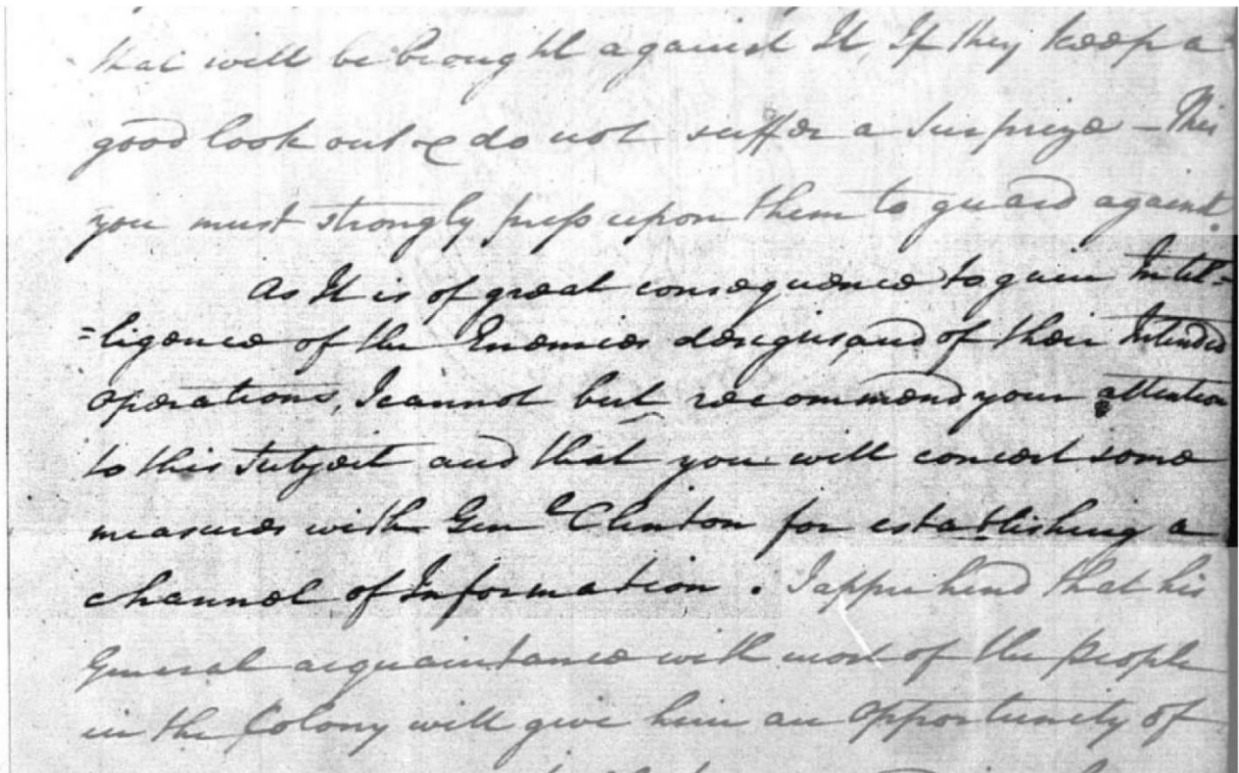 that will be brought against It, If they keep a
good look out & do not suffer a Surprize – This
you must strongly press upon them to guard against.
As It is of great consequence to gain Intel=
=ligence of the Enemies designs, and of their Intended
Operations, I cannot but recommend your attention
to this Subject and that you will concert some
measures with Genl Clinton for establishing a
channel of Information. I apprehend that his
General acquaintance with most of the people
in the Colony will give him an opportunity of